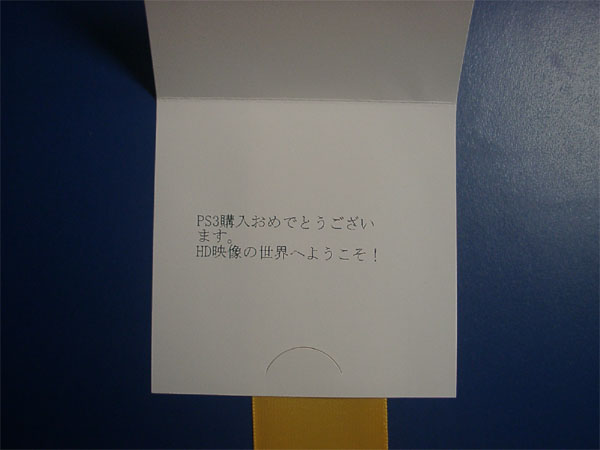 PS3購入おめでとうござい
ます。
HD映像の世界へようこそ！